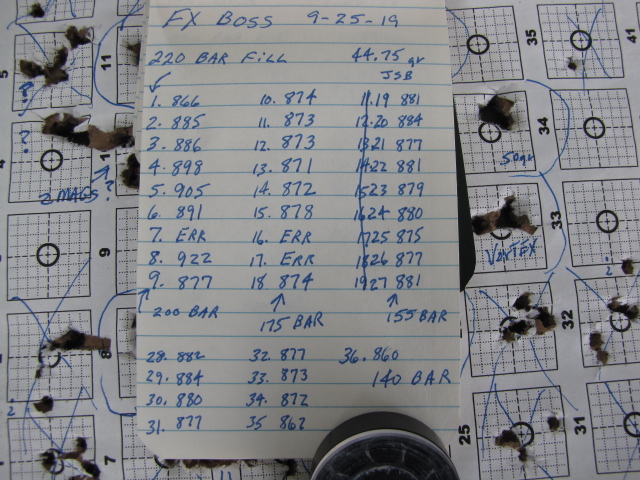 FX BOSS 9-25-19
220 BAR FILL 44.75 gr
JSB
1. 866 10. 874 11.19 881
2. 885 11. 873 12.20 884
3. 886 12. 873 1321 877
4. 898 13. 871 1422 881
5. 905 14. 872 1523 879
6. 891 15. 878 1624 880
7. ERR 16. ERR 1725 875
8. 922 17. ERR 1826 877
9. 877 18. 874 1927 881
200 BAR 175 BAR 155 BAR
28. 882 32. 877 36. 860
29. 884 33. 873 140 BAR
30. 880 34. 872
31. 877 35 862
5
11
?
4
2 MAGS ?
9
8
7
35
34
50gr
33
VORTEX
32
31
25